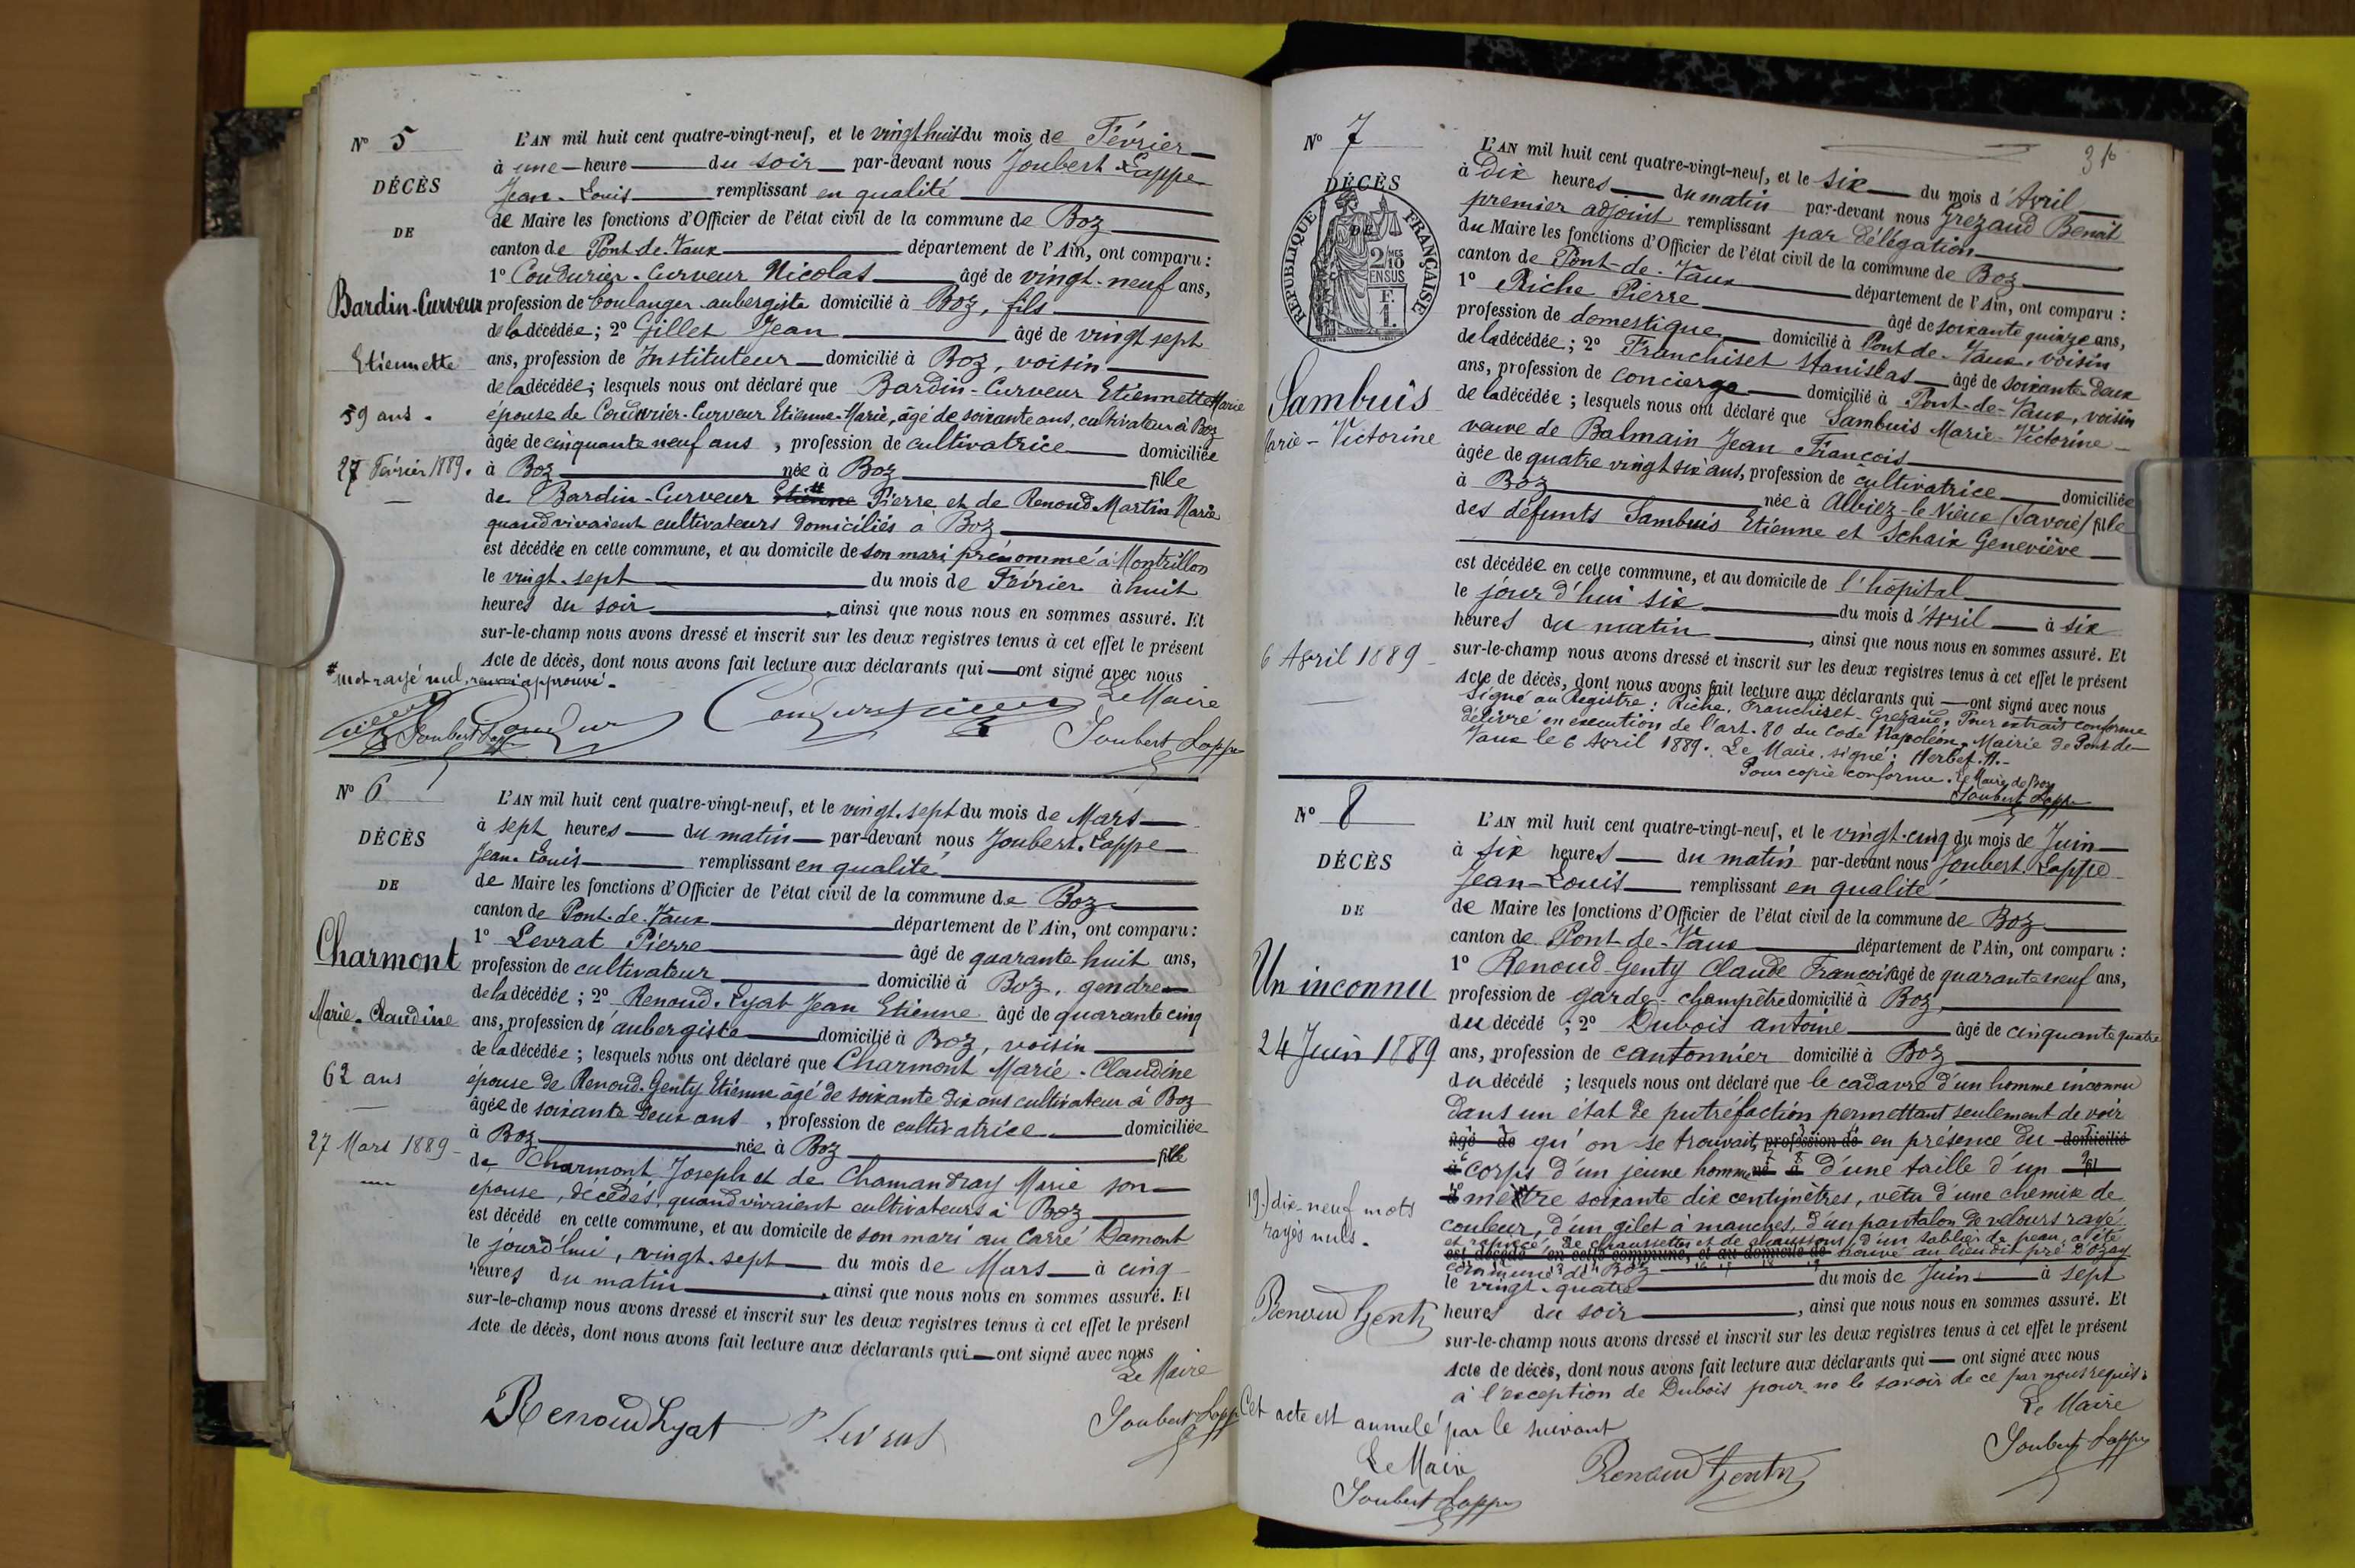 N° 5
DÉCÈS
DE
Bardin-Curveur
Etiennette
59 ans.
27 Février 1889.
L'AN mil huit cent quatre-vingt-neuf, et le vingt huit du mois de Février
à une heure du soir par-devant nous Joubert-Lappe
Jean-Louis remplissant en qualité
de Maire les fonctions d'Officier de l'état civil de la commune de Boz
canton de Pont-de-Vaux département de l'Ain, ont comparu :
1° Coudurier-Curveur Nicolas âgé de vingt-neuf ans,
profession de boulanger-aubergiste domicilié à Boz, fils
de la décédée ; 2° Gillet Jean âgé de vingt sept
ans, profession de Instituteur domicilié à Boz, voisin
de la décédée ; lesquels nous ont déclaré que Bardin-Curveur Etiennette Marie
épouse de Coudurier-Curveur Etienne-Marie, âgé de soixante ans, cultivateur à Boz
âgée de cinquante neuf ans, profession de cultivatrice domiciliée
à Boz née à Boz fille
de Bardin-Curveur Etienne # Pierre et de Renoud-Martin Marie
quand vivaient cultivateurs domiciliés à Boz
est décédée en cette commune, et au domicile de son mari prénommé à Montrillon
le vingt-sept du mois de Février à huit
heures du soir, ainsi que nous nous en sommes assuré. Et
sur-le-champ nous avons dressé et inscrit sur les deux registres tenus à cet effet le présent
Acte de décès, dont nous avons fait lecture aux déclarants qui ont signé avec nous
# mot rayé nul, renvoi approuvé.
Le Maire
Joubert Lappe
Joubert Lappe
N° 6
DÉCÈS
DE
Charmont
Marie-Claudine
62 ans
27 Mars 1889
L'AN mil huit cent quatre-vingt-neuf, et le vingt-sept du mois de Mars
à sept heures du matin par-devant nous Joubert-Lappe
Jean-Louis remplissant en qualité
de Maire les fonctions d'Officier de l'état civil de la commune de Boz
canton de Pont-de-Vaux département de l'Ain, ont comparu :
1° Levrat Pierre âgé de quarante huit ans,
profession de cultivateur domicilié à Boz, gendre
de la décédée ; 2° Renoud-Lyat Jean Etienne âgé de quarante cinq
ans, profession d'aubergiste domicilié à Boz, voisin
de la décédée ; lesquels nous ont déclaré que Charmont Marie-Claudine
épouse de Renoud-Genty Etienne âgé de soixante dix ans cultivateur à Boz
âgée de soixante deux ans, profession de cultivatrice domiciliée
à Boz née à Boz fille
de Charmont Joseph et de Chamandray Marie son
épouse, décédés, quand vivaient cultivateurs à Boz
est décédé en cette commune, et au domicile de son mari au Carré Damont
le jourd'hui, vingt-sept du mois de Mars à cinq
heures du matin, ainsi que nous nous en sommes assuré. Et
sur-le-champ nous avons dressé et inscrit sur les deux registres tenus à cet effet le présent
Acte de décès, dont nous avons fait lecture aux déclarants qui ont signé avec nous
Le Maire
Renoud Lyat P Levrat Joubert Lappe
N° 7
DÉCÈS
DE
RÉPUBLIQUE FRANÇAISE
2/10 EN SUS
Sambuis
Marie-Victorine
6 Avril 1889
L'AN mil huit cent quatre-vingt-neuf, et le six du mois d'Avril
à Dix heures du matin par-devant nous Grezaud Benoit
premier adjoint remplissant par délégation
du Maire les fonctions d'Officier de l'état civil de la commune de Boz
canton de Pont-de-Vaux département de l'Ain, ont comparu :
1° Riche Pierre âgé de soixante quinze ans,
profession de domestique domicilié à Pont-de-Vaux, voisin
de la décédée ; 2° Franchiset Stanislas âgé de soixante deux
ans, profession de concierge domicilié à Pont-de-Vaux, voisin
de la décédée ; lesquels nous ont déclaré que Sambuis Marie-Victorine
veuve de Balmain Jean François
âgée de quatre vingt six ans, profession de cultivatrice domiciliée
à Boz née à Albiez-le-Vieux (Savoie) fille
des défunts Sambuis Etienne et Schaix Geneviève
est décédée en cette commune, et au domicile de l'hôpital
le jour d'hui six du mois d'Avril à six
heures du matin, ainsi que nous nous en sommes assuré. Et
sur-le-champ nous avons dressé et inscrit sur les deux registres tenus à cet effet le présent
Acte de décès, dont nous avons fait lecture aux déclarants qui ont signé avec nous
Signé au Registre : Riche, Franchiset-Grezaud, Pour extrait conforme
délivré en exécution de l'art. 80 du Code Napoléon. Mairie de Pont-de-
Vaux le 6 Avril 1889. Le Maire, signé : Herbet. A.
Pour copie conforme. Le Maire de Boz
Joubert Lappe
N° 8
DÉCÈS
DE
Un inconnu
24 Juin 1889
19.) dix-neuf mots
rayés nuls.
Renoud Genty
L'AN mil huit cent quatre-vingt-neuf, et le vingt-cinq du mois de Juin
à six heures du matin par-devant nous Joubert-Lappe
Jean-Louis remplissant en qualité
de Maire les fonctions d'Officier de l'état civil de la commune de Boz
canton de Pont-de-Vaux département de l'Ain, ont comparu :
1° Renoud-Genty Claude François âgé de quarante neuf ans,
profession de garde-champêtre domicilié à Boz,
du décédé ; 2° Dubois antoine âgé de cinquante quatre
ans, profession de cantonnier domicilié à Boz
du décédé ; lesquels nous ont déclaré que le cadavre d'un homme inconnu
dans un état de putréfaction permettant seulement de voir
âgé de qu'on se trouvait profession de en présence du domicilié
à corps d'un jeune homme né à d'une taille d'un fil
de mètre soixante dix centimètres, vêtu d'une chemise de
couleur, d'un gilet à manches, d'un pantalon de velours rayé
et rapiécé, de chaussettes et de chaussons, d'un tablier de peau, a été
est décédé en cette commune, et au domicile de trouvé au lieu dit pré d'Ozay
commune de Boz
le vingt-quatre du mois de Juin à sept
heures du soir, ainsi que nous nous en sommes assuré. Et
sur-le-champ nous avons dressé et inscrit sur les deux registres tenus à cet effet le présent
Acte de décès, dont nous avons fait lecture aux déclarants qui ont signé avec nous
à l'exception de Dubois pour ne le savoir de ce par nous requis.
Le Maire
Joubert Lappe
Cet acte est annulé par le suivant
Le Maire
Joubert Lappe
Renoud Genty